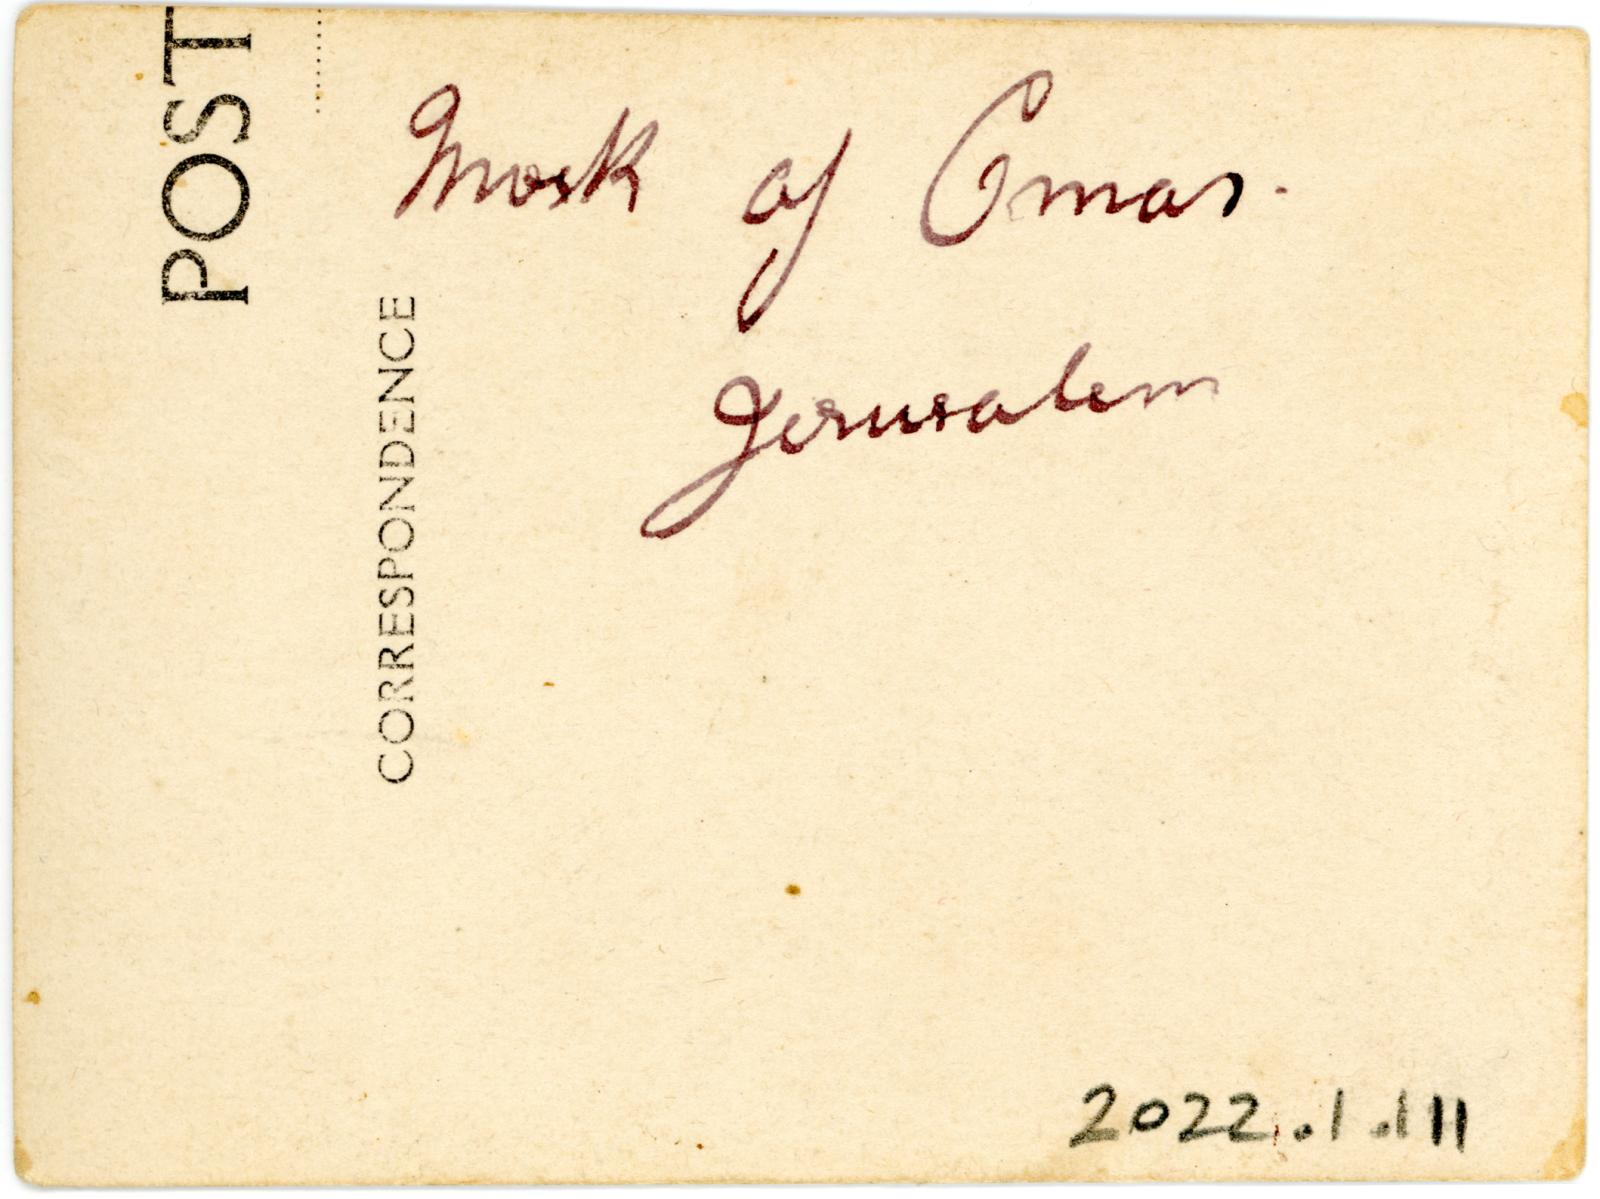 POST
CORRESPONDENCE
Mosk of Omar.
Jerusalem
2022.1.111